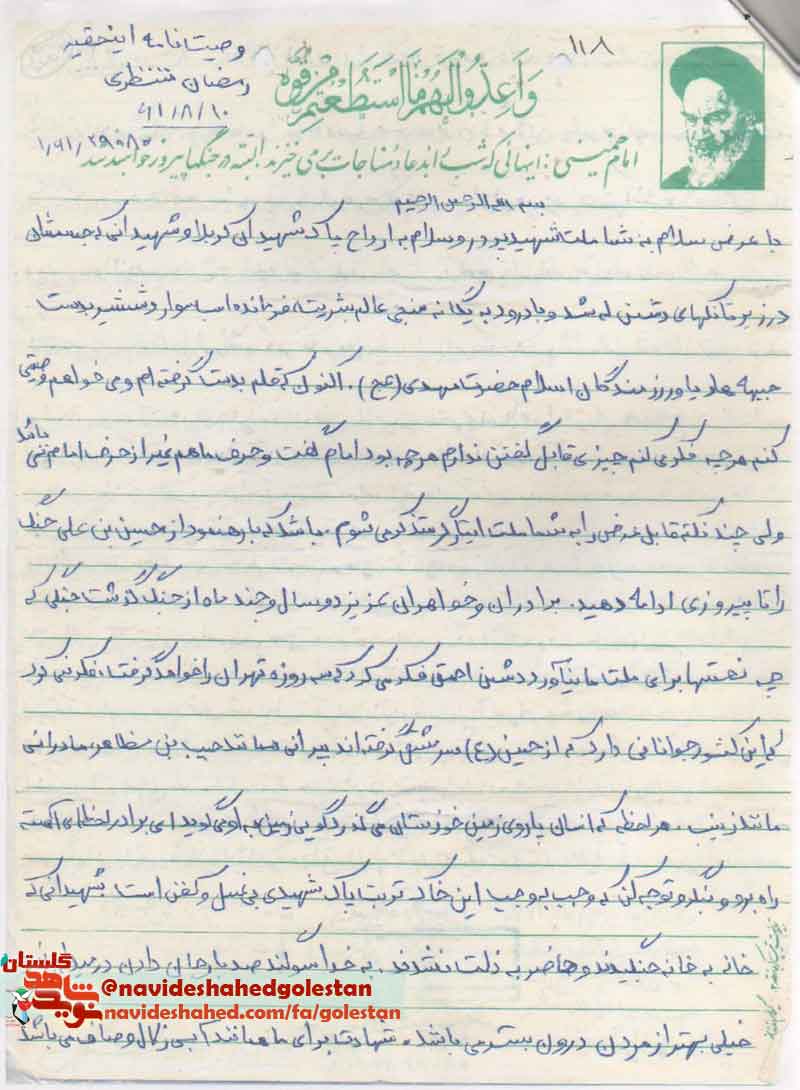 ۱۱۸
وصیتنامه اینحقیر
رمضان منتظری
۶۱/۸/۱۰
وَاَعِدُّوا لَهُم مَّا اسْتَطَعْتُم مِّن قُوَّه
امام خمینی: اینهائی که شب برای دعا و مناجات برمی خیزند البته در جنگها پیروز خواهند شد
بسم الله الرحمن الرحیم
با عرض سلام به شما ملت شهیدپرور و سلام به ارواح پاک شهیدان کربلا و شهیدانی که جسمشان
در زیر تانکهای دشمن له شد و با درود به یگانه منجی عالم بشریت، فرمانده اسب سوار و شمشیر بدست
جبهه ها و یاور رزمندگان اسلام حضرت مهدی (عج). اکنون که قلم بدست گرفته ام و می خواهم وصیتی
کنم هر چه فکر می کنم چیزی قابل گفتن ندارم هر چه بود امام گفت و حرف ما هم غیر از حرف امام نمی باشد
ولی چند نکته قابل عرض را به شما ملت ایثارگر متذکر می شوم. باشد که با رهنمود از حسین بن علی جنگ
را تا پیروزی ادامه دهید. برادران و خواهران عزیز دو سال و چند ماه از جنگ گذشت جنگی که
چه نعمتها برای ملت ما بیاآورد دشمن احمق فکر می کرد که سه روزه تهران را خواهد گرفت، فکر نمی کرد
که این کشور جوانانی دارد که از حسین (ع) سرمشق گرفته اند پیرانی همانند حبیب بنی مظاهر، مادرانی
مانند زینب. هر لحظه که انسان پا روی زمین خوزستان می گذارد گویی زمین به او می گوید ای برادر لحظه ای آهسته
راه برو و بنگر و توجه کن که وجب به وجب این خاک تربت پاک شهیدی بی غسل و کفن است. شهیدانی که
خانه به خانه جنگیدند و حاضر به ذلت نشدند. به خدا سوگند صد بار جان دادن در
خیلی بهتر از مردن درون بستر می باشد. شهادت برای ما همانند آبی زلال و صاف می باشد
نوید شاهد گلستان
@navideshahedgolestan
navideshahed.com/fa/golestan